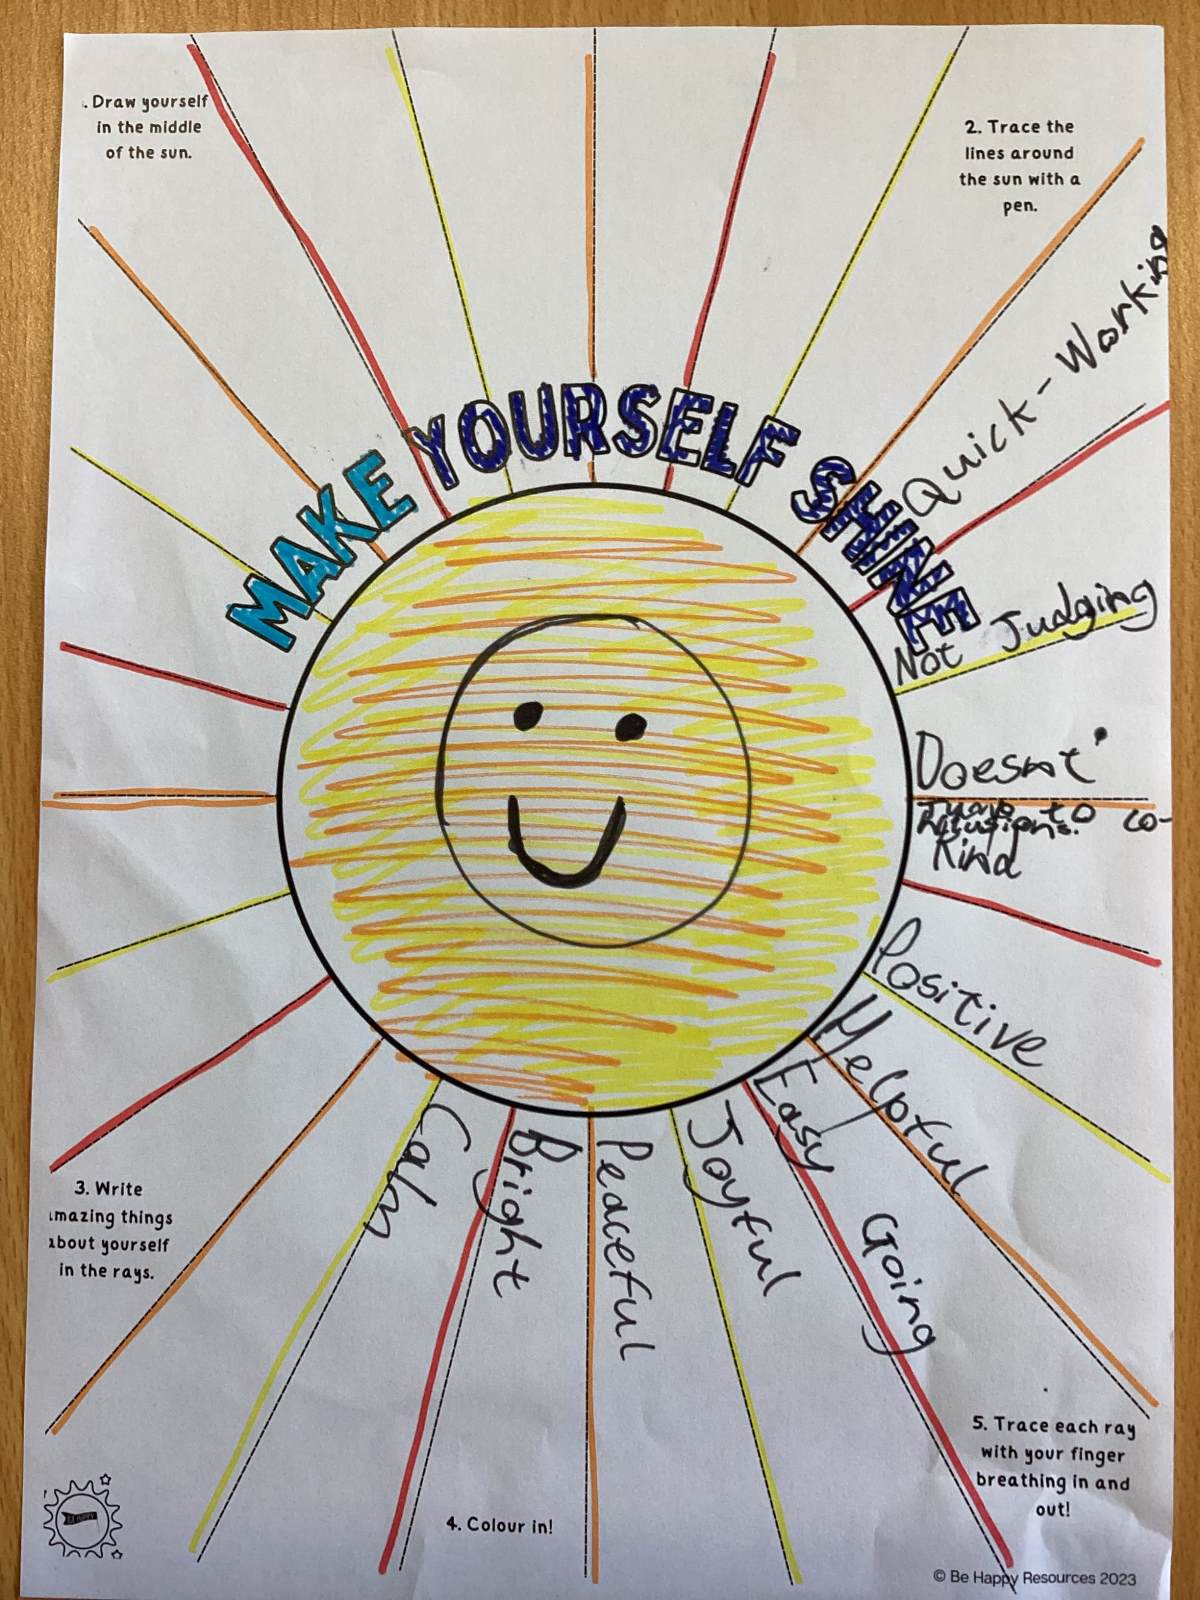 . Draw yourself
in the middle
of the sun.
2. Trace the
lines around
the sun with a
pen.
MAKE YOURSELF SHINE
Quick-Working
Not Judging
Doesnt'
Jump to co-
nclusions.
Kind
Positive
Helpful
Easy Going
Joyful
Peaceful
Bright
Calm
3. Write
mazing things
about yourself
in the rays.
4. Colour in!
5. Trace each ray
with your finger
breathing in and
out!
BE HAPPY
© Be Happy Resources 2023